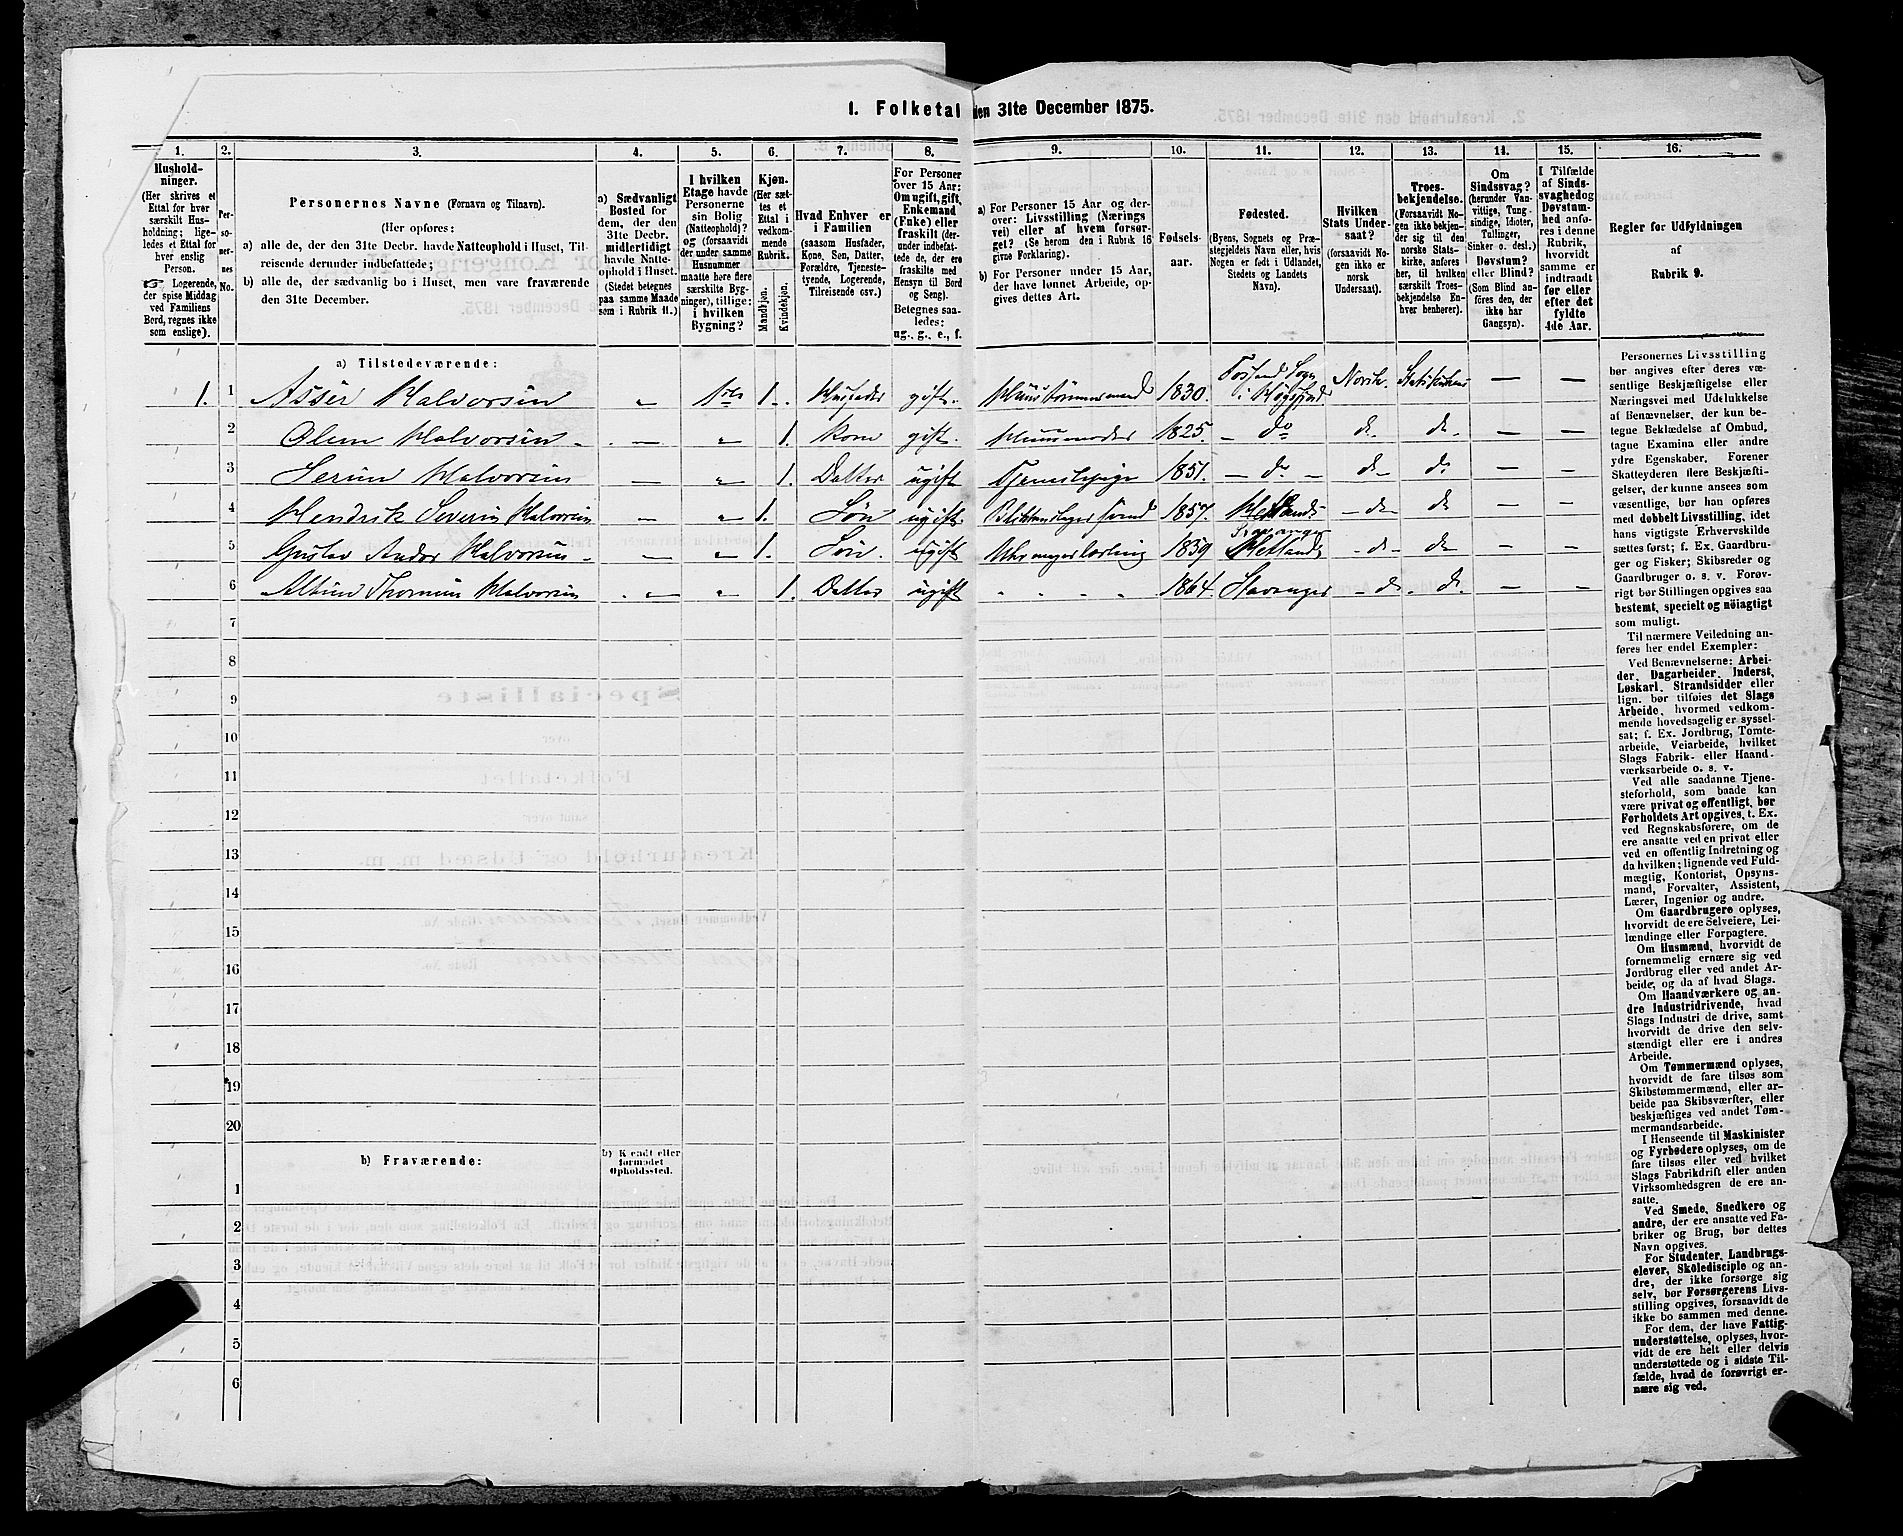 1. Folketal den 31te December 1875.
1. 2. 3. 4. 5. 6. 7. 8. 9. 10. 11. 12. 13. 14. 15. 16.
Hushold-
ninger.
(Her skrives et
Ettal for hver
særskilt Hus-
holdning; lige-
ledes et Ettal for
hver enslig
Person.
☞ Logerende,
der spise Middag
ved Familiens
Bord, regnes ikke
som enslige).
Per-
so-
ner-
nes
No.
Personernes Navne (Fornavn og Tilnavn).
(Her opføres:
a) alle de, der den 31te Decbr. havde Natteophold i Huset, Til-
reisende derunder indbefattede;
b) alle de, der sædvanlig bo i Huset, men vare fraværende
den 31te December.
a) Sædvanligt
Bosted for
dem, der den
31te Decbr.
midlertidigt
havde Natte-
ophold i Huset.
(Stedet betegnes
paa samme Maade
som i Rubrik 11.)
I hvilken
Etage havde
Personerne
sin Bolig
(Natteophold)?
og (forsaavidt
der under samme
Husnummer
maatte høre flere
særskilte Byg-
ninger), tillige:
i hvilken
Bygning?
Kjøn.
(Her sæt-
tes et
Ettal i
vedkom-
mende
Rubrik.
Mandkjøn.
Kvindekjøn.
Hvad Enhver er
i Familien
(saasom Husfader,
Kone, Søn, Datter,
Forældre, Tjeneste-
tyende, Logerende,
Tilreisende osv.)
For Personer
over 15 Aar:
Om ugift, gift,
Enkemand
(Enke) eller
fraskilt (der-
under indbefat-
tede de, der ere
fraskilte med
Hensyn til Bord
og Seng).
Betegnes saa-
ledes:
ug., g., e., f.
a) For Personer 15 Aar og der-
over: Livsstilling (Nærings
vei) eller af hvem forsør-
get? (Se herom den i Rubrik 16
givne Forklaring).
b) For Personer under 15 Aar,
der have lønnet Arbeide, op-
gives dettes Art.
Fødsels-
aar.
Fødested.
(Byens, Sognets og Præ-
stegjeldets Navn eller, hvis
Nogen er født i Udlandet,
Stedets og Landets
Navn).
Hvilken
Stats Under-
saat?
(forsaavidt No-
gen ikke er
norsk
Undersaat).
Troes-
bekjendelse.
(Forsaavidt No-
gen ikke beken-
der sig til den
norske Stats-
kirke, anføres
her, til hvilken
særskilt Troes-
bekjendelse En-
hver henhører).
Om
Sindssvag?
(herunder Van-
vittige, Tung-
sindige, Idioter,
Tullinger,
Sinker o. desl.)
Døvstum?
eller Blind?
(Som Blind an-
føres den, der
ikke har
Gangsyn).
I Tilfælde
af Sinds-
svaghed og
Døvstum-
hed anfø-
res i denne
Rubrik,
hvorvidt
samme er
indtraadt
før eller
efter det
fyldte
4de Aar.
Regler for Udfyldningen
af
Rubrik 9.
a) Tilstedeværende:
1. 1 Assér Halvorsen „ 1ste 1. Husfader gift. Huustømmermand 1830. Fossand Sogn i Høgsfjord Norsk. Statskirken — —
2 Olene Halvorsen — „ 1. Kone gift. Huusmoder 1825. do do do — —
3 Serine Halvorsen — „ 1. Datter ugift Tjenestepige 1851. do do do — —
4 Hendrik Severin Halvorsen — „ 1. Søn ugift. Blikkenslagersvend 1857. Hetlands do do — —
5 Gustav Andor Halvorsen — „ 1. Søn. ugift Uhrmagerlærling 1859 Stavanger Hetlands do do — —
6 Thomine Halvorsen „ 1. Datter ugift „ „ „ „ 1864. Stavanger do. do. — —
7
8
9
10
11
12
13
14
15
16
17
18
19
20
b) Fraværende:
b) Kjendt eller
formodet
Opholdssted.
1
2
3
4
5
6
Personernes Livsstilling
bør angives efter deres væ-
sentlige Beskjæftigelse eller
Næringsvei med Udelukkelse
af Benævnelser, der kun be-
tegne Beklædelse af Ombud,
tagne Examina eller andre
ydre Egenskaber. Forener
Skatteyderen flere Beskjæfti-
gelser, der kunne ansees som
væsentlige, bør han opføres
med dobbelt Livsstilling, idet
hans vigtigste Erhvervskilde
sættes først; f. Ex. Gaardbru-
ger og Fisker; Skibsreder og
Gaardbruger o. s. v. Forøv-
rigt bør Stillingen opgives saa
bestemt, specielt og nöiagtigt
som muligt.
Til nærmere Veiledning an-
føres her endel Exempler:
Ved Benævnelserne: Arbei-
der, Dagarbeider, Inderst,
Løskarl, Strandsidder eller
lign. bør tilføies det Slags
Arbeide, hvormed vedkom-
mende hovedsagelig er syssel-
sat; f. Ex. Jordbrug, Tomte-
arbeide, Veiarbeide, hvilket
Slags Fabrik- eller Haand-
værksarbeide o. s. v.
Ved alle saadanne Tjene-
steforhold, som baade kan
være privat og offentligt, bør
Forholdets Art opgives, t. Ex.
ved Regnskabsførere, om de
ere ansatte ved en privat eller
ved en offentlig Indretning og
da hvilken; lignende ved Fuld-
mægtig, Kontorist, Opsyns-
mand, Forvalter, Assistent,
Lærer, Ingeniør og andre.
Om Gaardbrugere oplyses,
hvorvidt de ere Selveiere, Lei-
lændinge eller Forpagtere.
Om Husmænd, hvorvidt de
fornemmelig ernære sig ved
Jordbrug eller ved andet Ar-
beide, og da af hvad Slags.
Om Haandværkere og an-
dre Industridrivende, hvad
Slags Industri de drive, samt
hvorvidt de drive den selv-
stændigt eller ere i andres
Arbeide.
Om Tømmermænd oplyses,
hvorvidt de fare tilsøs som
Skibstømmermænd, eller ar-
beide paa Skibsværfter, eller
beskjæftiges ved andet Tøm-
mermandsarbeide.
I Henseende til Maskinister
og Fyrbødere oplyses, om de
fare tilsøs eller ved hvilket
Slags Fabrikdrift eller anden
Virksomhedsgren de ere an-
satte.
Ved Smede, Snedkere og
andre, der ere ansatte ved Fa-
briker og Brug, bør dettes
Navn opgives.
For Studenter, Landbrugs-
elever, Skoledisciple og an-
dre, der ikke forsørge sig
selv, bør Forsørgerens Livs-
stilling opgives, forsaavidt de
ikke bo sammen med denne.
For dem, der have Fattig-
understøttelse, oplyses, hvor-
vidt de ere helt eller delvis
understøttede og i sidste Til-
fælde, hvad de forøvrigt er-
nære sig ved.